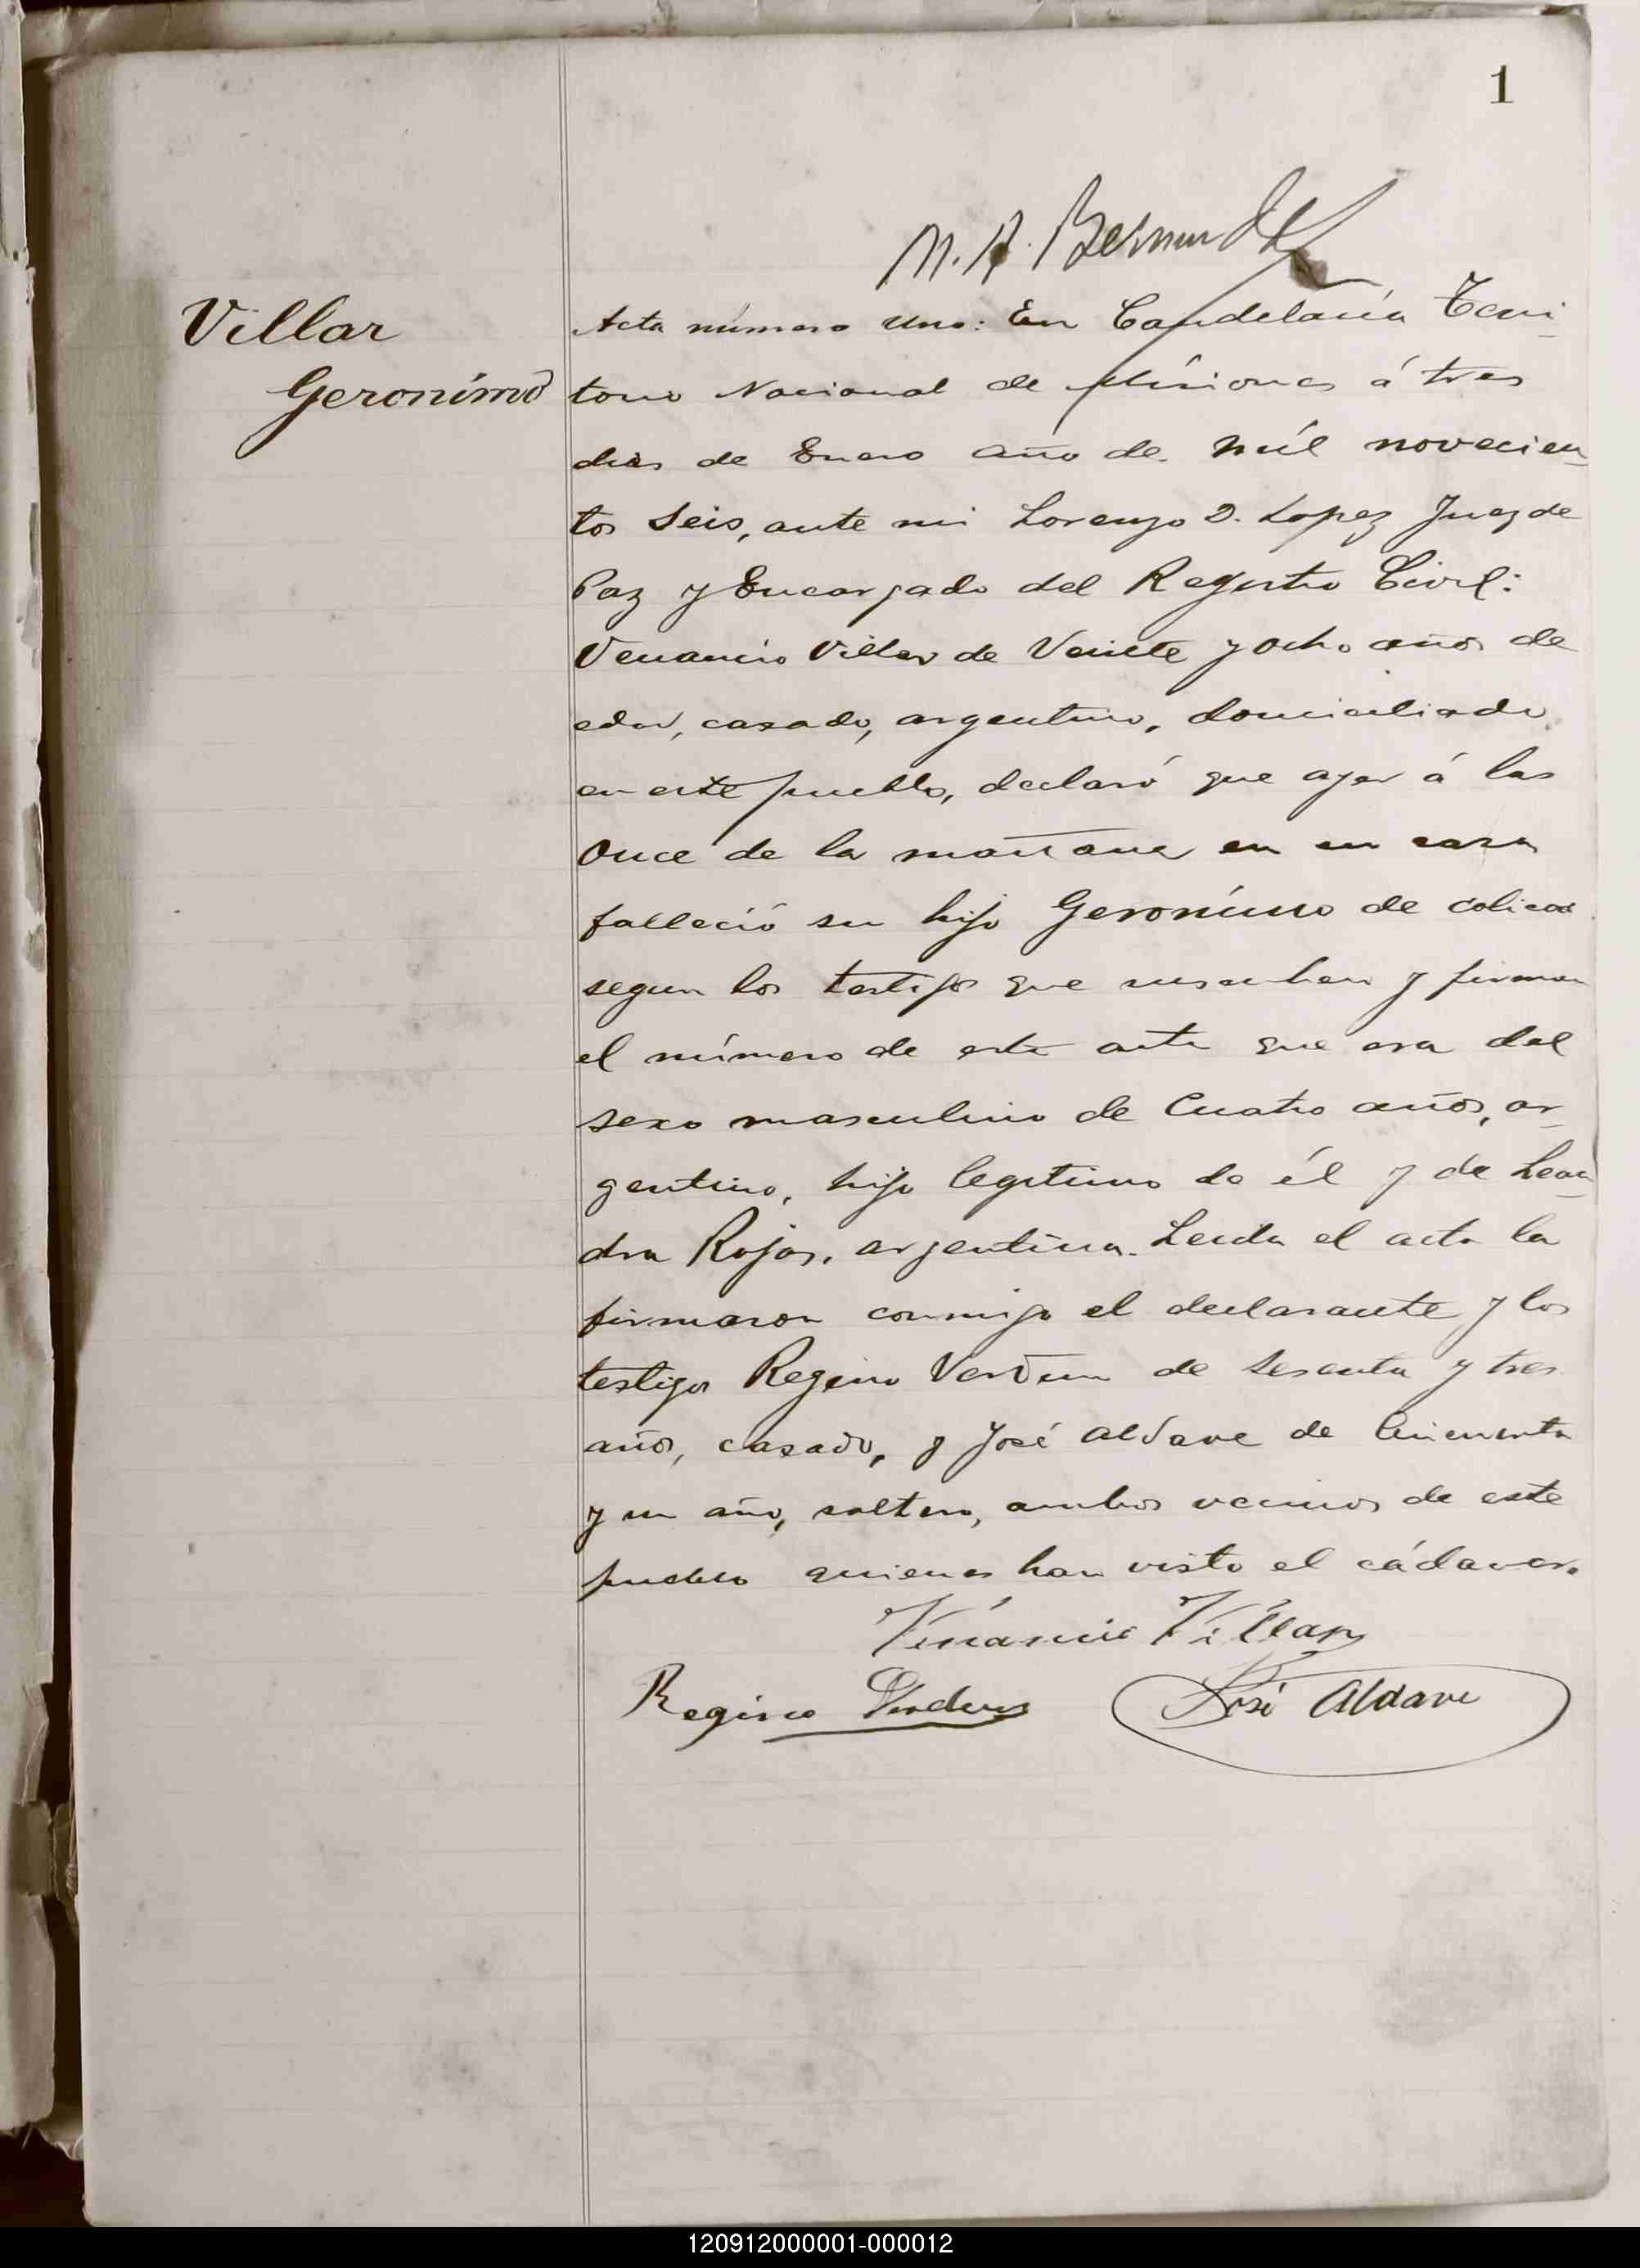 1
M. A. Bermudez
Villar
Geronimo
Acta número Uno: En Candelaria Terri-
torio Nacional de Misiones á tres
dias de Enero año de mil novecien-
tos Seis, ante mi Lorenzo D. Lopez Juez de
Paz y Encargado del Registro Civil:
Venancio Villar de Veinte y ocho años de
edad, casado, argentino, domiciliado
en este pueblo, declaró que ayer á las
Once de la mañana en su casa
falleció su hijo Geronimo de colicos
segun los testigos que suscriben y firman
el número de este acta que era del
sexo masculino de Cuatro años, ar-
gentino, hijo legitimo de él y de Lean-
dra Rojas, argentina. Leida el acta la
firmaron conmigo el declarante y los
testigos Regino Verdun de Sesenta y tres
años, casado, y José Aldave de Cincuenta
y un año, soltero, ambos vecinos de este
pueblo quienes han visto el cádaver.
Venáncio Villar
Regino Verdun José Aldave
120912000001-000012